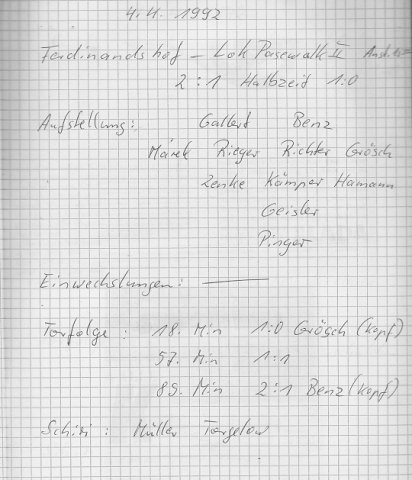 4.4. 1992
Ferdinandshof - Lok Pasewalk II
2:1 Halbzeit 1:0
Aufstellung: Gallert Benz
Márek Rieger Richter Grösch
Zenke Kämper Hamann
Geisler
Pinger
Einwechslungen: —
Torfolge: 18. Min 1:0 Grösch (Kopf)
57. Min 1:1
89. Min 2:1 Benz (Kopf)
Schiri: Müller Torgelow